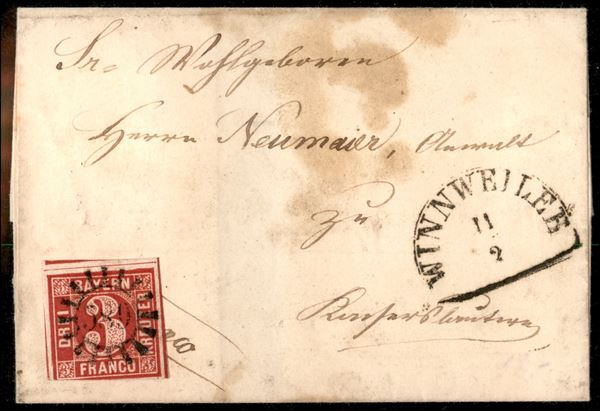 Sr= Wohlgeboren
Herrn Neumaier, Anwalt
zu
Kaiserslautern
WINNWEILER
11
2
BAYERN
DREI
3
KREUZER
FRANCO
franco